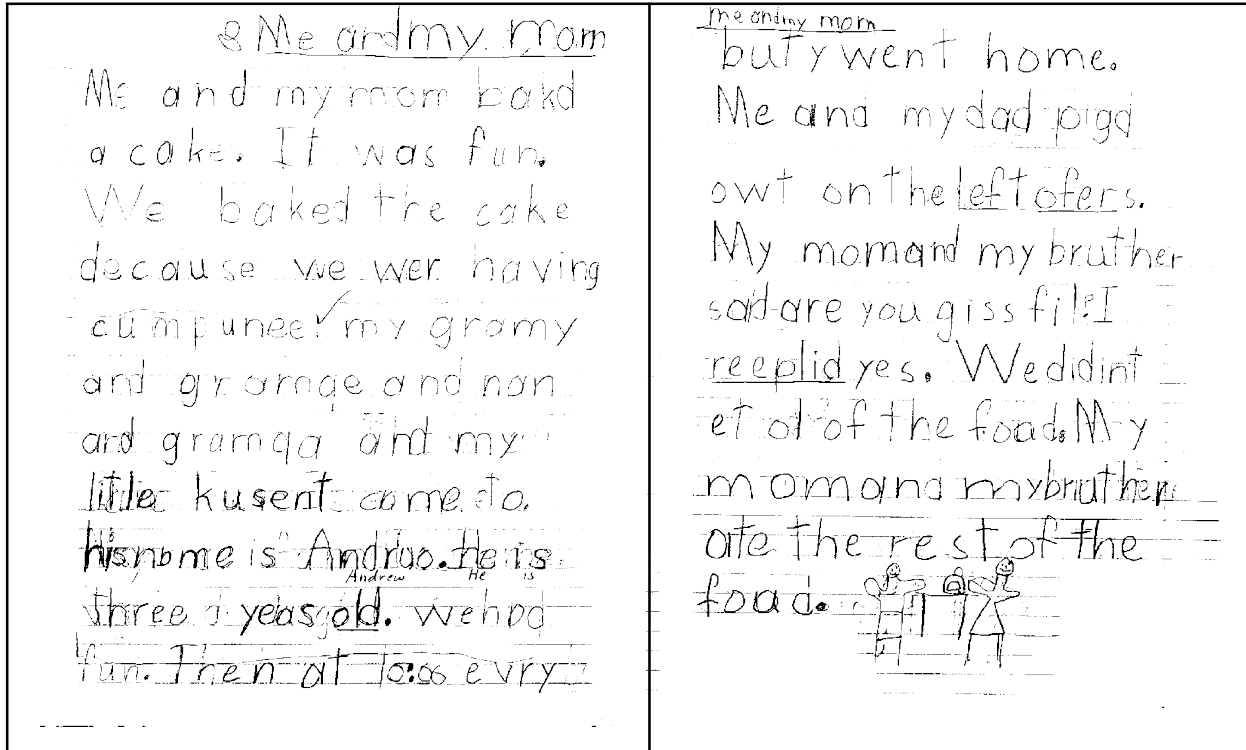 Me and my mom
Me and my mom bakd
a cake. It was fun.
We baked the cake
decause we wer having
cumpunee my gramy
and gramqe and nan
and gramqa and my
little kusent came to.
his name is Andruo. He is
Andrew He is
three yeas old. we had
fun. Then at 10:00 evry
me and my mom
buty went home.
Me and my dad pigd
owt on the leftofers.
My mom and my bruther
sad are you giss fil? I
reeplid yes. We didint
et ol of the foad. My
mom and my bruther
ate the rest of the
foad.